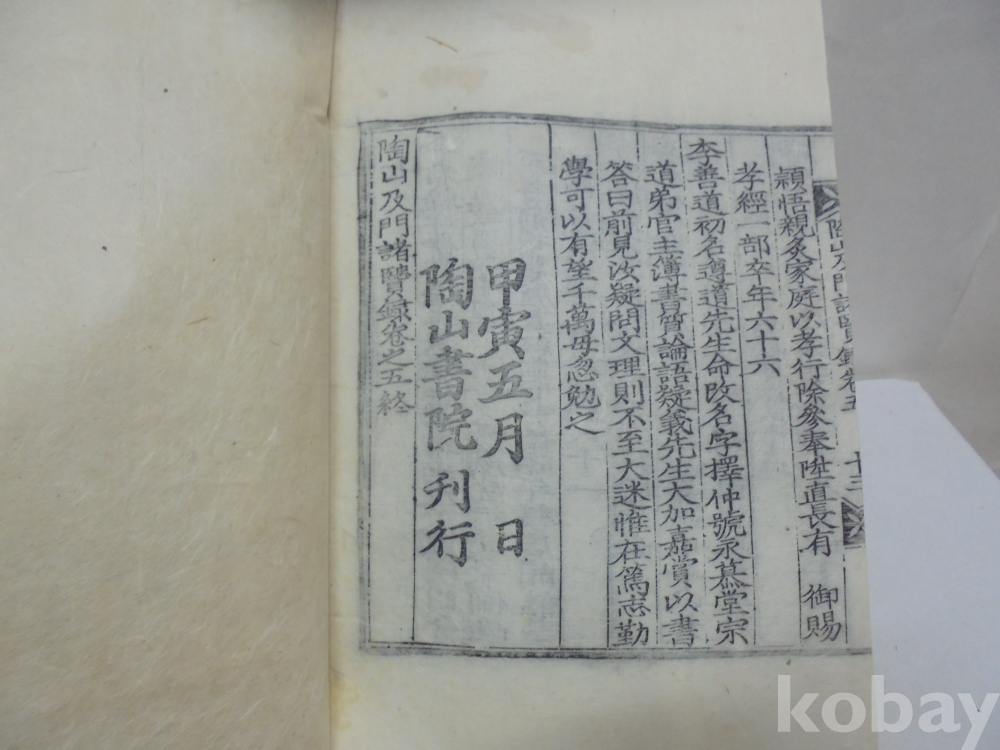 陶山及門諸賢錄卷五
十三
穎悟親炙家庭以孝行除參奉陞直長有 御賜
孝經一部卒年六十六
李善道初名遵道先生命改名字擇仲號永慕堂宗
道弟官主簿書質論語疑義先生大加嘉賞以書
答曰前見汝疑問文理則不至大迷惟在篤志勤
學可以有望千萬毋忽勉之
甲寅五月 日
陶山書院刊行
陶山及門諸賢錄卷之五終
kobay